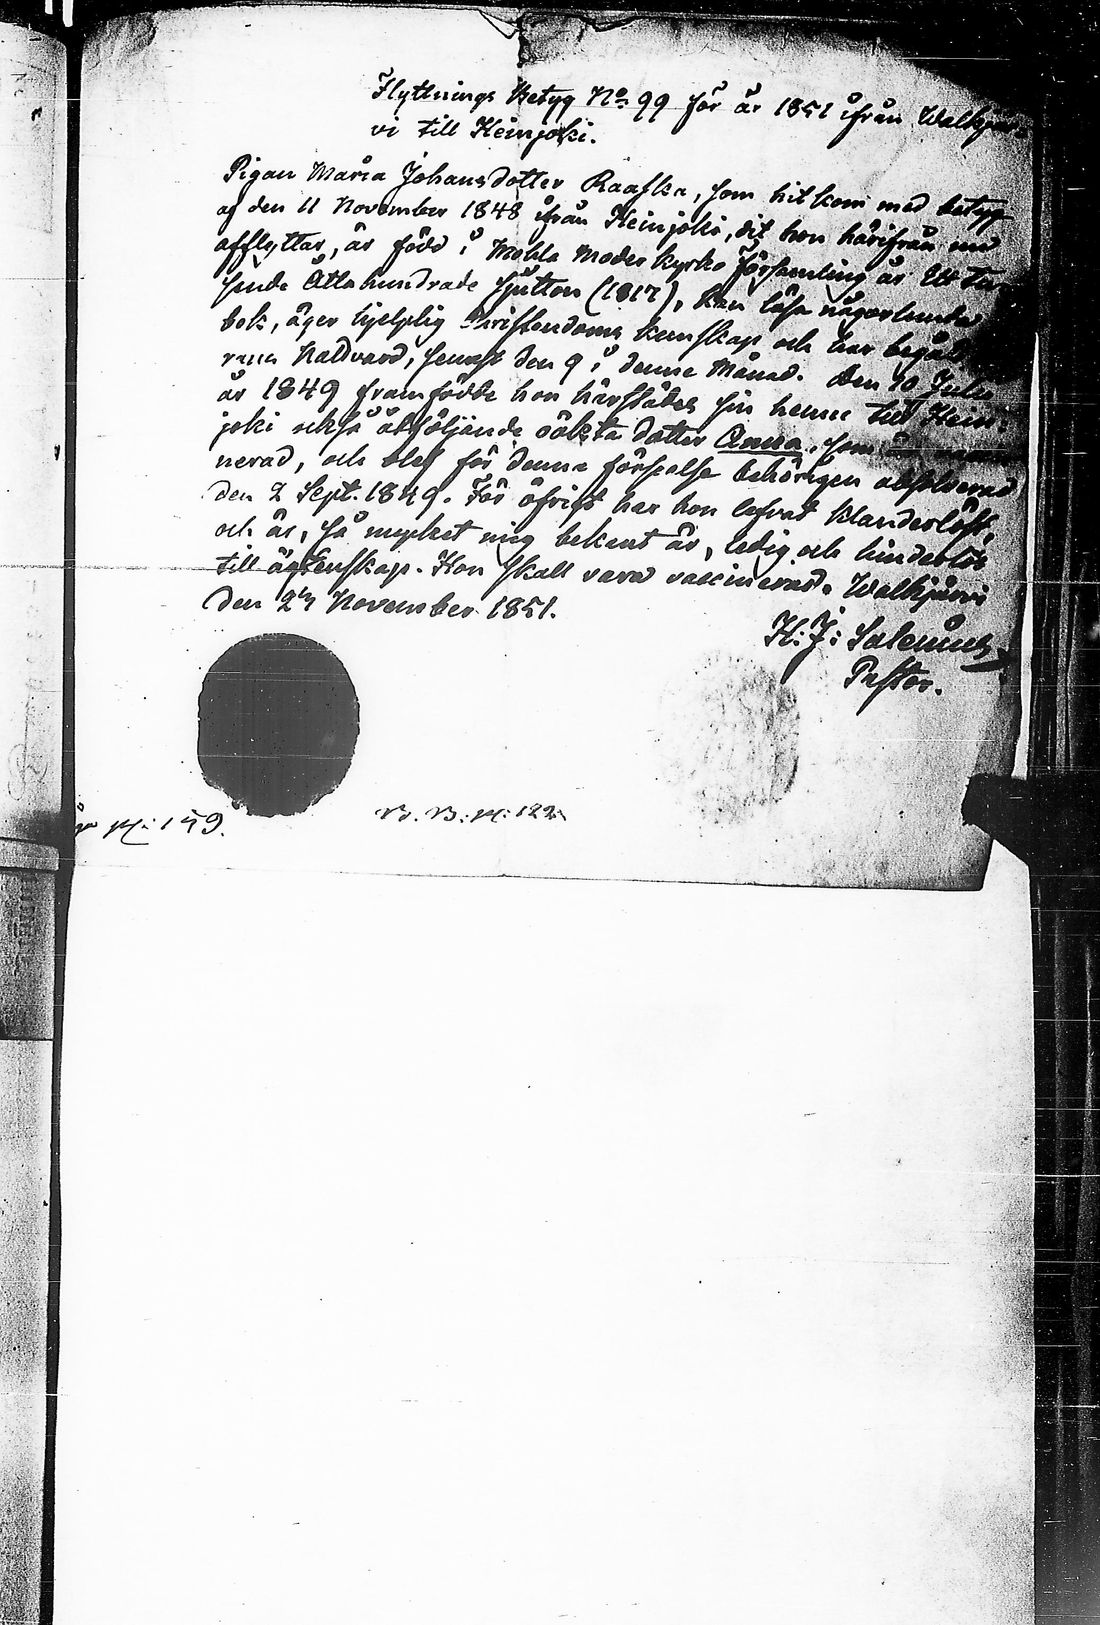 Flyttnings Betyg No 99 för år 1851 ifrån Walkjär-
vi till Heinjoki.
Pigan Maria Johansdotter Raaska, som hit kom med betyg
af den 11 November 1848 ifrån Heinjoki, dit hon härifrån nu
afflyttar, är född i Mohla Moderkyrko Församling år Ett Tu-
sende Åttahundrade Sjutton (1817), kan läsa någorlunda
bok, äger hjelplig Christendoms kunskap och har begått
Nattvard, senast den 9 i denne Månad. Den 10 Julii
år 1849 framfödde hon härstädes sin henne till Hein-
joki åtföljande oäkta dotter Anna, som är
nerad, och blef för denna förseelse behörigen absolverad
den 2 Sept. 1849. För öfrigt har hon lefvat klanderlöst,
och är, så mycket mig bekant är, ledig och hinderlös
till äktenskap. Hon skall vara vaccinerad. Walkjärvi
den 27 November 1851.
H: J: Salenius
Pastor.
159.
B. B. p: 122.